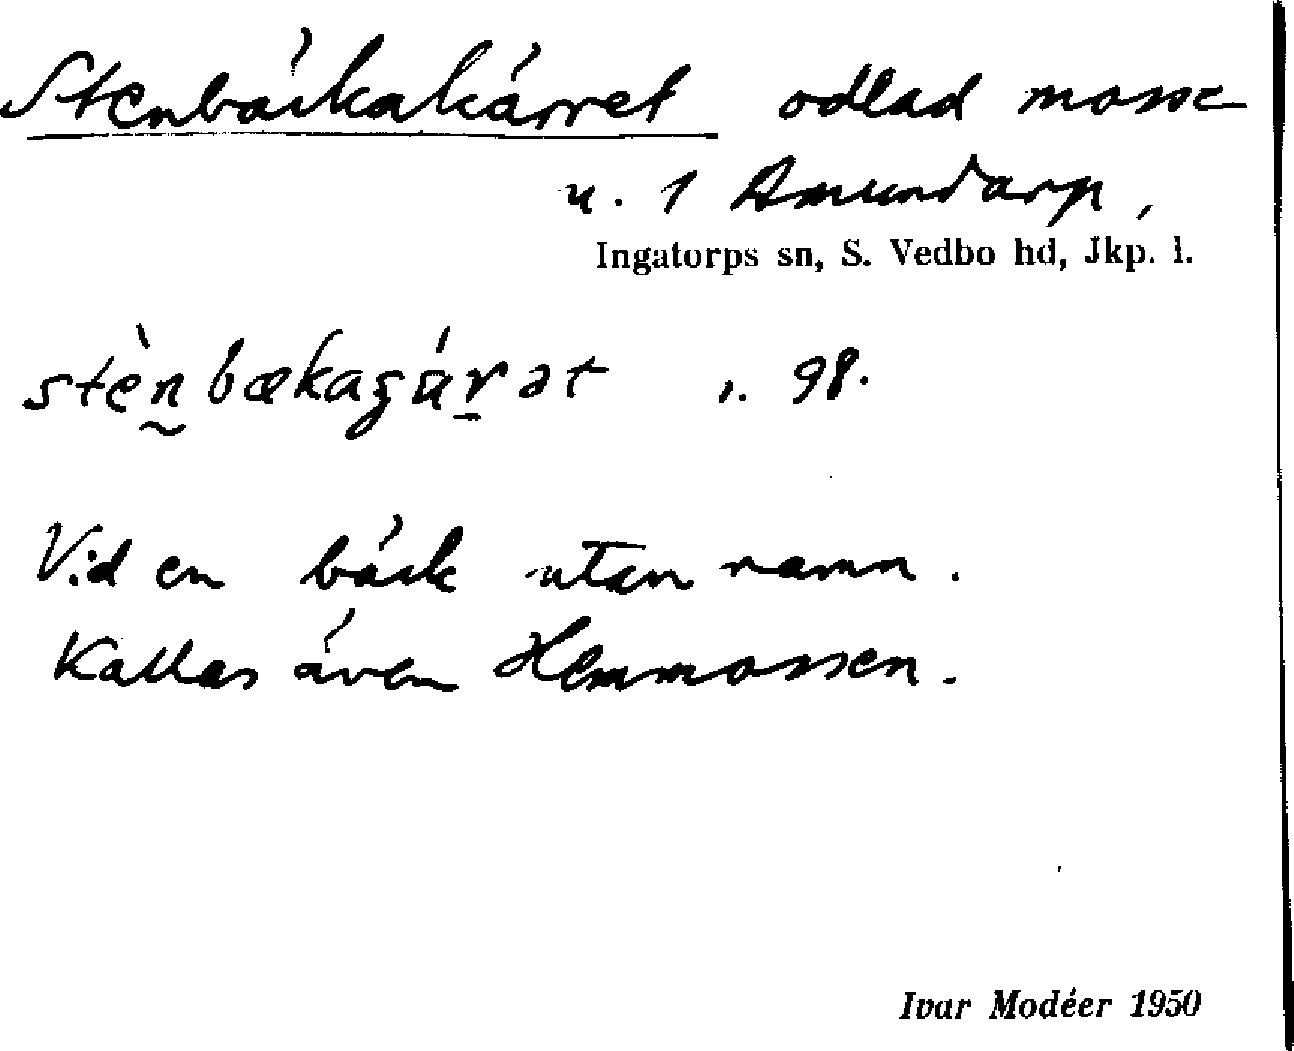 Stenbäckakärret odlad mosse
u. 1 Amundarp,
Ingatorps sn, S. Vedbo hd, Jkp. l.
stèn̰bækagár̲ət 1. 98.
Vid en bäck utan namn.
Kallas även Hemmossen.
Ivar Modéer 1950